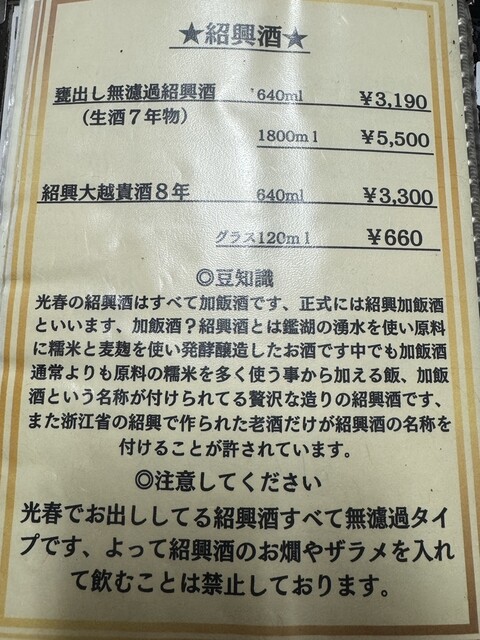 ★紹興酒★
甕出し無濾過紹興酒 640ml ¥3,190
(生酒７年物)
1800ml ¥5,500
紹興大越貴酒８年 640ml ¥3,300
グラス120ml ¥660
◎豆知識
光春の紹興酒はすべて加飯酒です、正式には紹興加飯酒
といいます、加飯酒？紹興酒とは鑑湖の湧水を使い原料
に糯米と麦麹を使い発酵醸造したお酒です中でも加飯酒
通常よりも原料の糯米を多く使う事から加える飯、加飯
酒という名称が付けられてる贅沢な造りの紹興酒です、
また浙江省の紹興で作られた老酒だけが紹興酒の名称を
付けることが許されています。
◎注意してください
光春でお出ししてる紹興酒すべて無濾過タイ
プです、よって紹興酒のお燗やザラメを入れ
て飲むことは禁止しております。